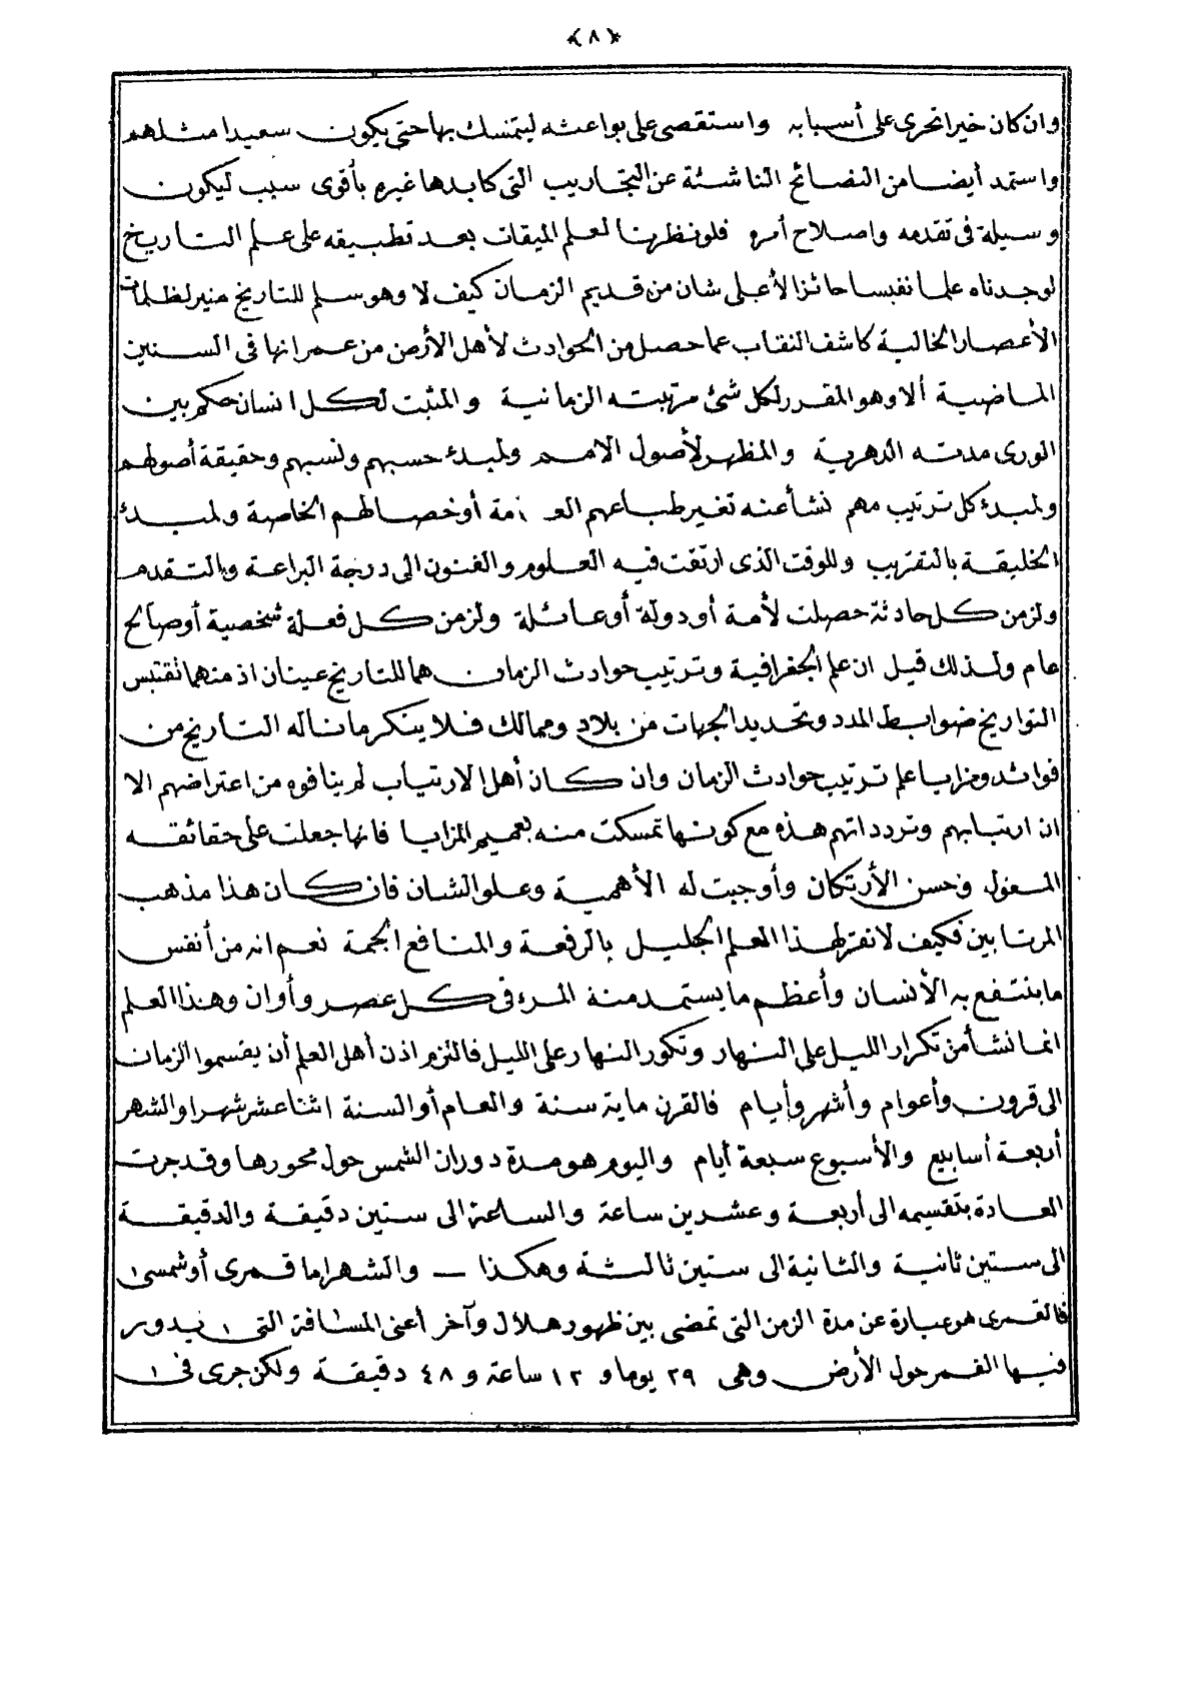 ﴿٨﴾
وان كان خيرا تحرى على أسبابه واستقصى على بواعثه ليتمسك بها حتى يكون سعيدا مثلهم
واستمد أيضا من النصائح الناشئة عن التجاريب التى كابدها غيره بأقوى سبب ليكون
وسيلة فى تقدمه واصلاح أمره فلو نظرنا لعلم الميقات بعد تطبيقه على علم التاريخ
لوجدناه علما نفيسا حائزا لأعلى شان من قديم الزمان كيف لا وهو سلم للتاريخ منير لظلمات
الأعصار الخالية كاشف النقاب عما حصل من الحوادث لأهل الأرض من عمرانها فى السنين
الماضية ألا وهو المقرر لكل شئ مرتبته الزمانية والمثبت لكل انسان حكم بين
الورى مدته الدهرية والمظهر لأصول الامم ولمبدء حسبهم ونسبهم وحقيقة أصولهم
ولمبدء كل ترتيب مهم نشأ عنه تغير طباعهم أو خصالهم الخاصة ولمبدء
الخليقة بالتقريب وللوقت الذى ارتقت فيه العلوم والفنون الى درجة البراعة والتقدم
ولزمن كل حادثة حصلت لأمة أو دولة أو عائلة ولزمن كل فعلة شخصية أو صالح
عام ولذلك قيل ان علم الجغرافية وترتيب حوادث الزمان هما للتاريخ عينان اذ منهما تقتبس
التواريخ ضوابط المدد وتحديد الجهات من بلاد وممالك فلا ينكر ما ناله التأريخ من
فوائد ومزايا علم ترتيب حوادث الزمان وان كان أهل الارتياب لم ينافوه من اعتراضهم الا
ان ارتيابهم وتردداتهم هذه مع كونها تمسكت منه بعميم المزايا فانها جعلت على حقائقه
المعول وحسن الأرتكان وأوجبت له الأهمية وعلو الشان فان كان هذا مذهب
المرتابين فكيف لا نقر لهذا العلم الجليل بالرفعة والمنافع الجمة نعم انه من أنفس
ما ينتفع به الأنسان وأعظم ما يستمد منه المرء فى كل عصر وأوان وهذا العلم
انما نشأ من تكرار الليل على النهار وتكور النهار على الليل فالتزم اذن أهل العلم أن يقسموا الزمان
الى قرون وأعوام وأشهر وأيام فالقرن ماية سنة والعام أو السنة اثنا عشر شهرا والشهر
أربعة أسابيع والأسبوع سبعة أيام واليوم هو مدة دوران الشمس حول محورها وقد جرت
العادة بتقسيمه الى أربعة وعشرين ساعة والساعة الى ستين دقيقة والدقيقة
الى ستين ثانية والثانية الى ستين ثالثة وهكذا — والشهر اما قمرى أو شمسى
فالقمرى هو عبارة عن مدة الزمن التى تمضى بين ظهور هلال وآخر أعنى المسافة التى يدور
فيها القمر حول الأرض وهى ٢٩ يوما و ١٢ ساعة و ٤٨ دقيقة ولكن جرى فى